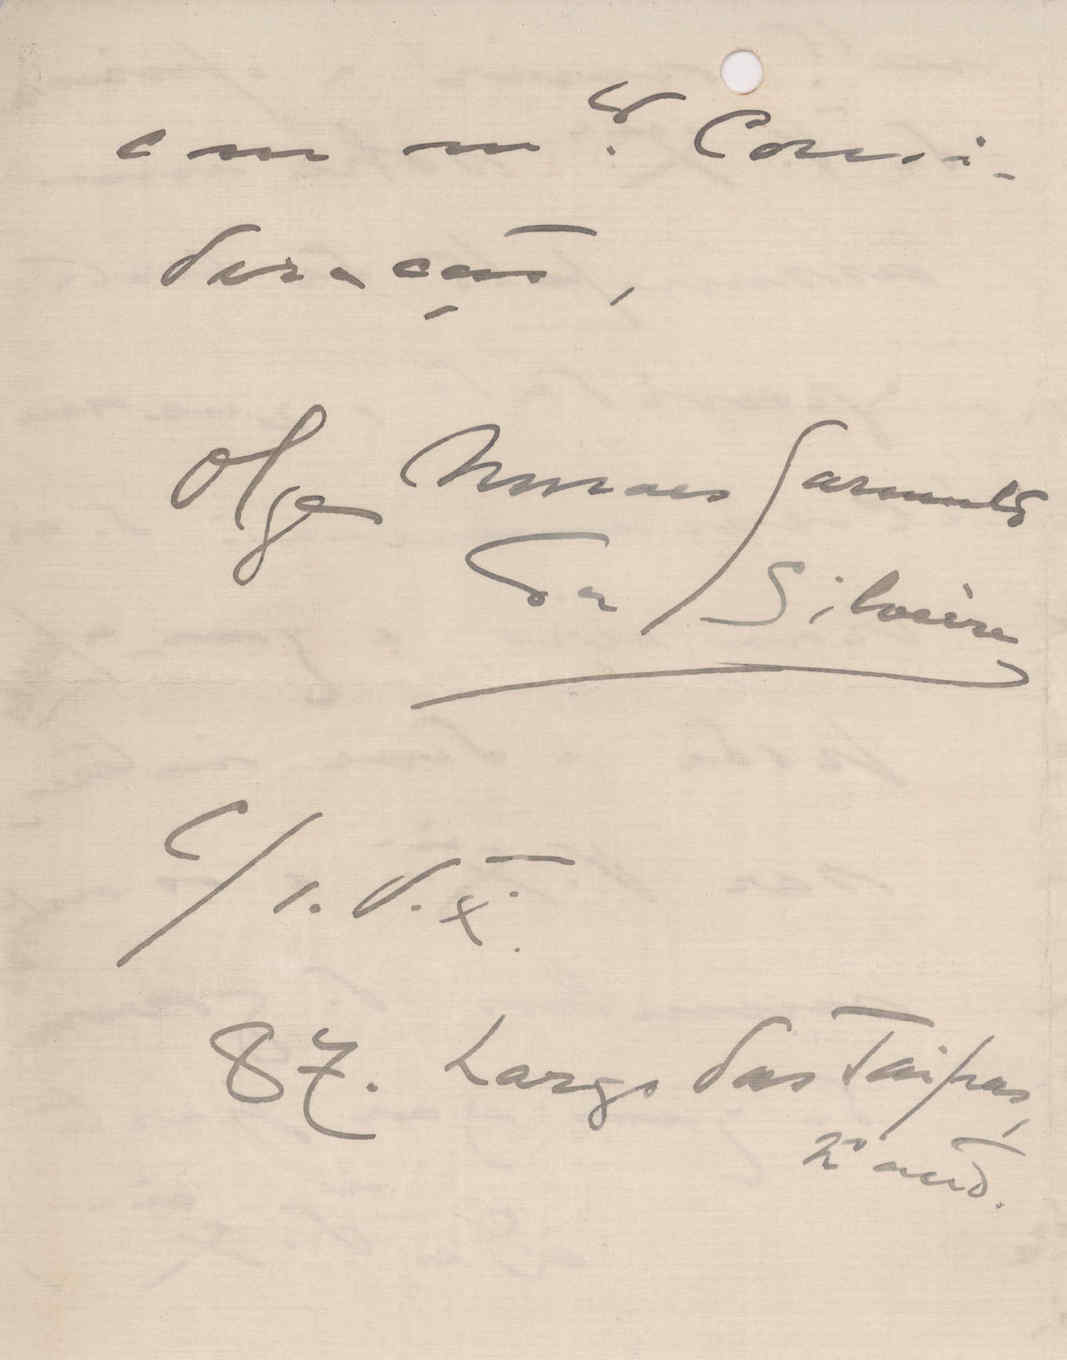 com m.ta Consi-
deração,
Olga Moraes Sarmento
da Silveira
C/ 1. d. Ex.
87. Largo das Taipas,
2º and.